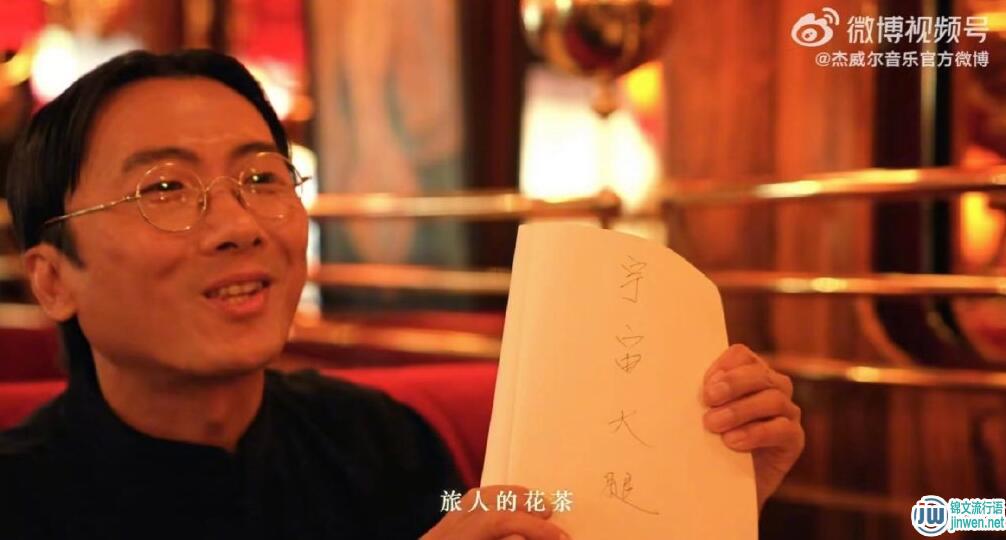 微博视频号
@杰威尔音乐官方微博
宇宙大腿
旅人的花茶
JW
锦文流行语
jinwen.net